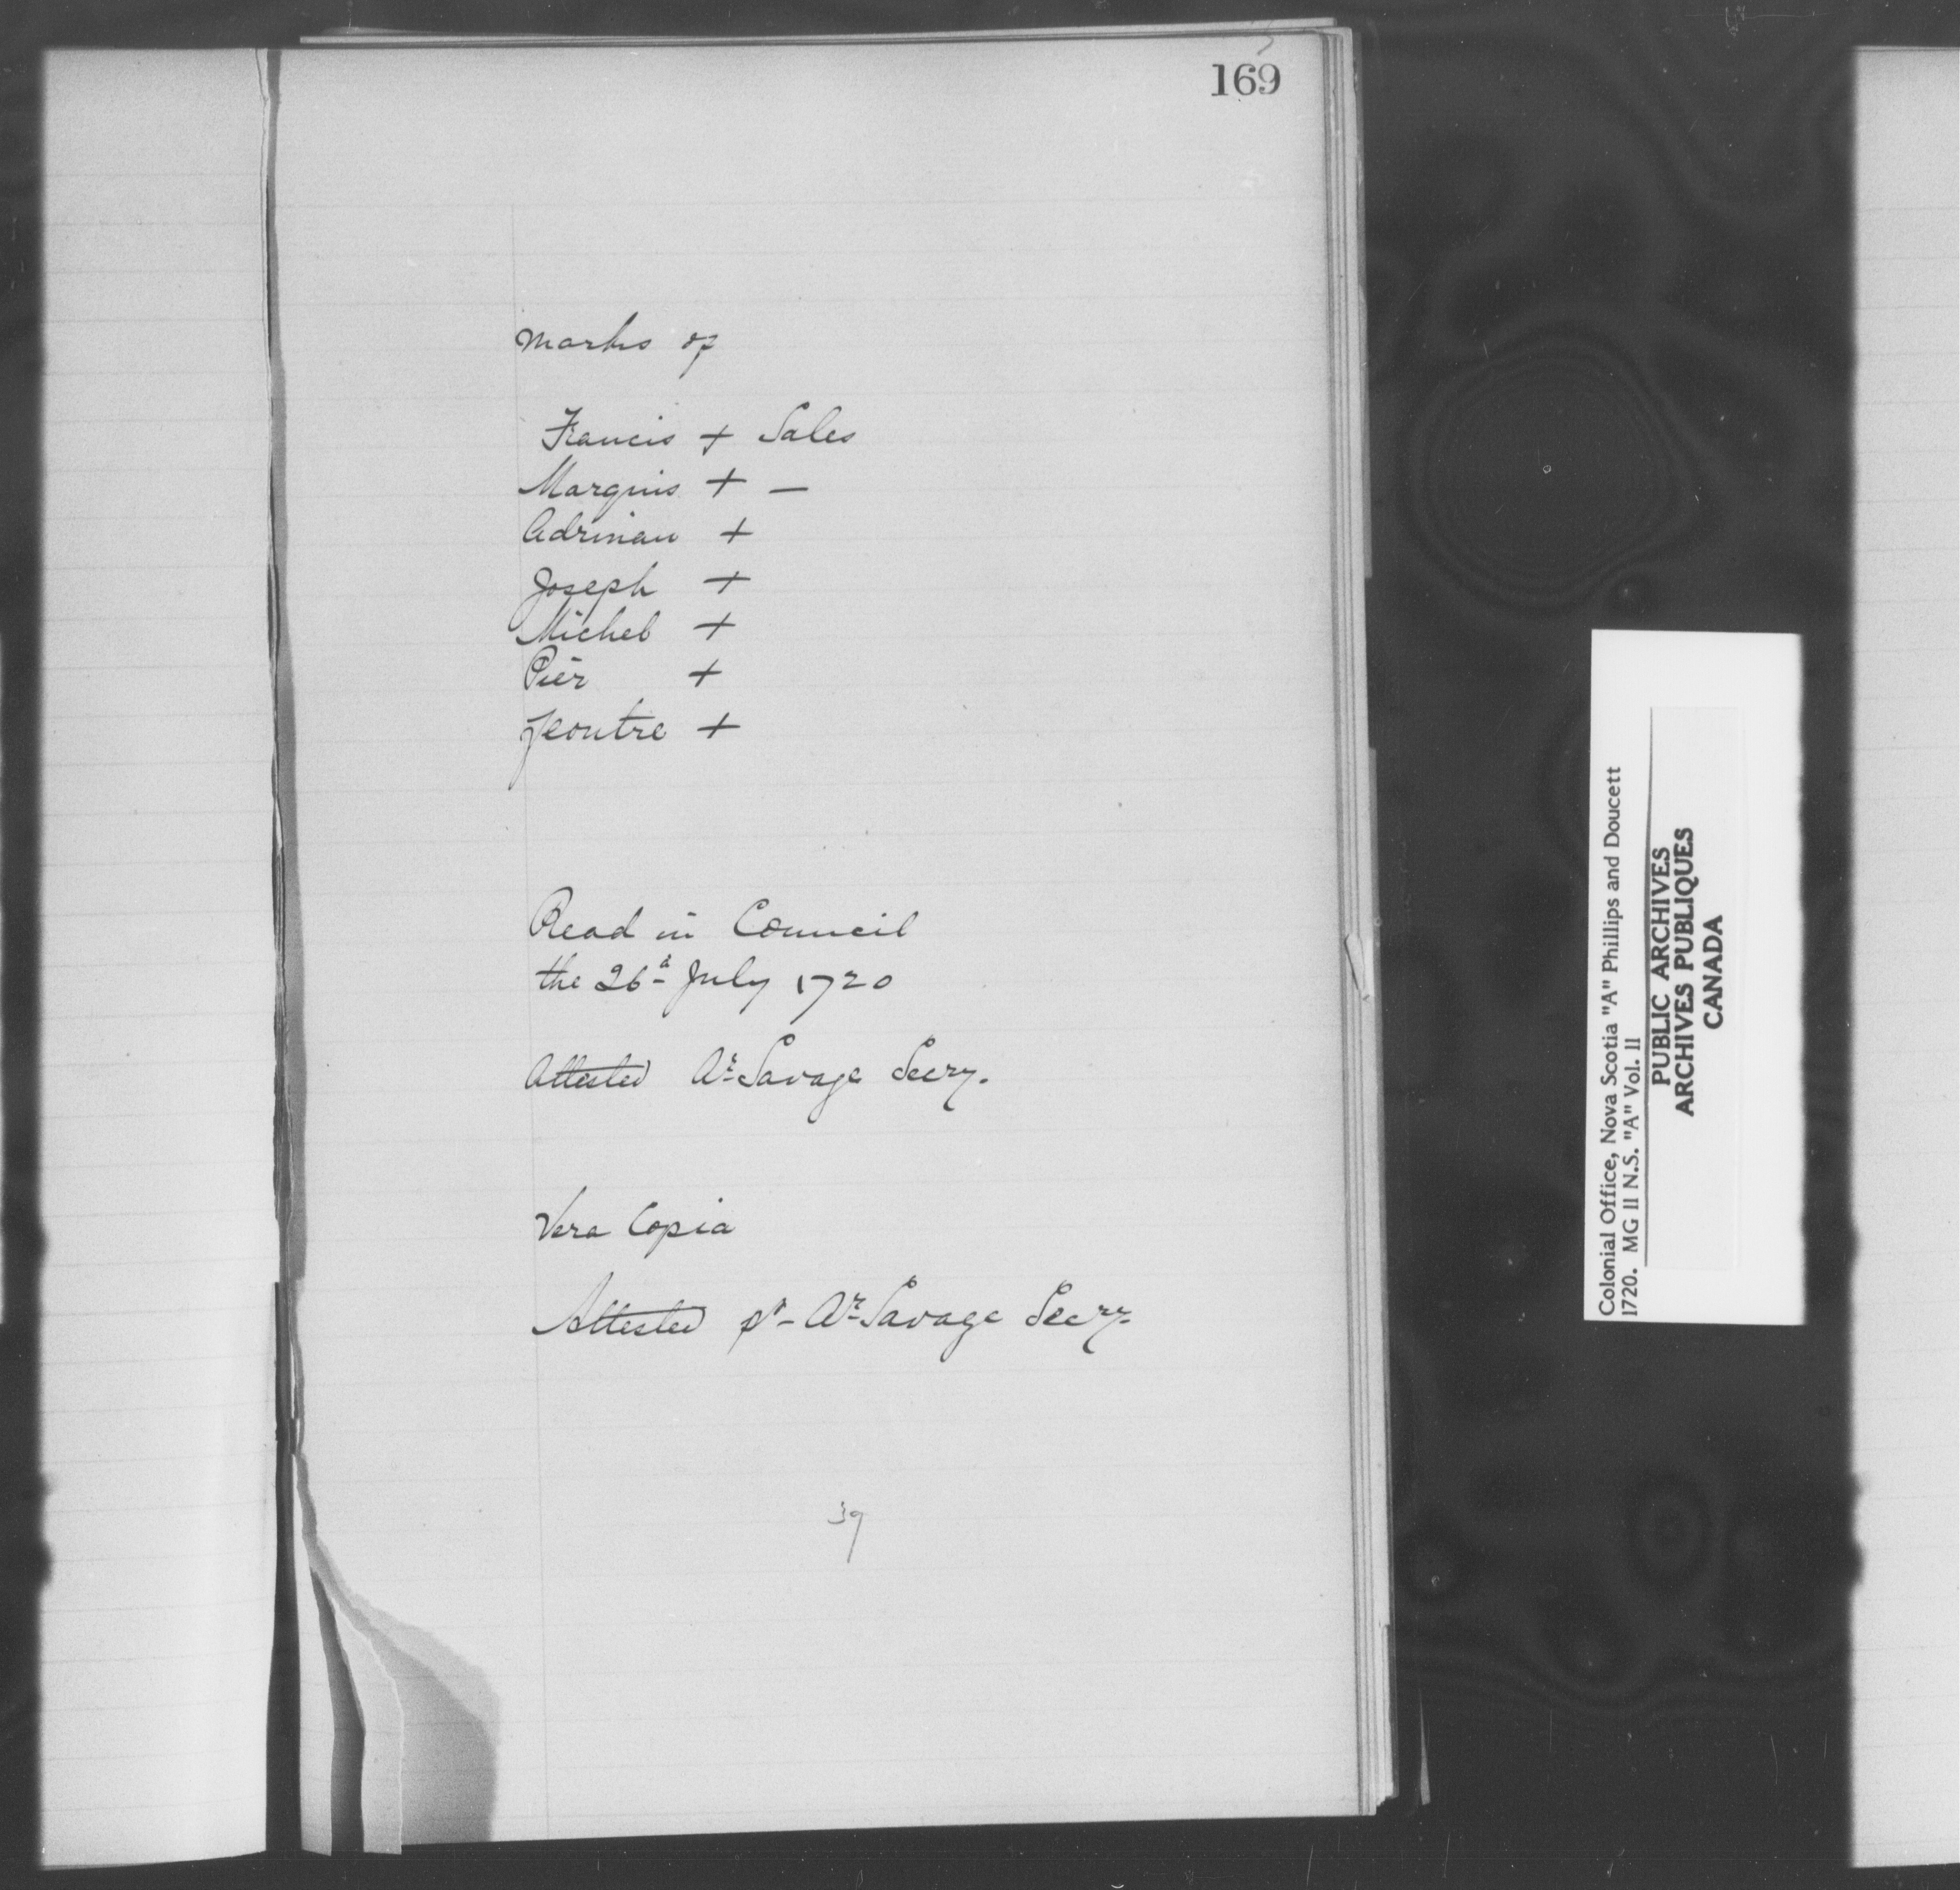 169
Marks of
Francis + Sales
Marquis + —
Adrinan +
Joseph +
Michel +
Pier +
Jeontre +
Read in Council
the 26d July 1720
Attested Ar Savage Secry.
Vera Copia
Attested pr Ar Savage Secry.
39
Colonial Office, Nova Scotia "A" Phillips and Doucett
1720. MG 11 N.S. "A" Vol. 11
PUBLIC ARCHIVES
ARCHIVES PUBLIQUES
CANADA